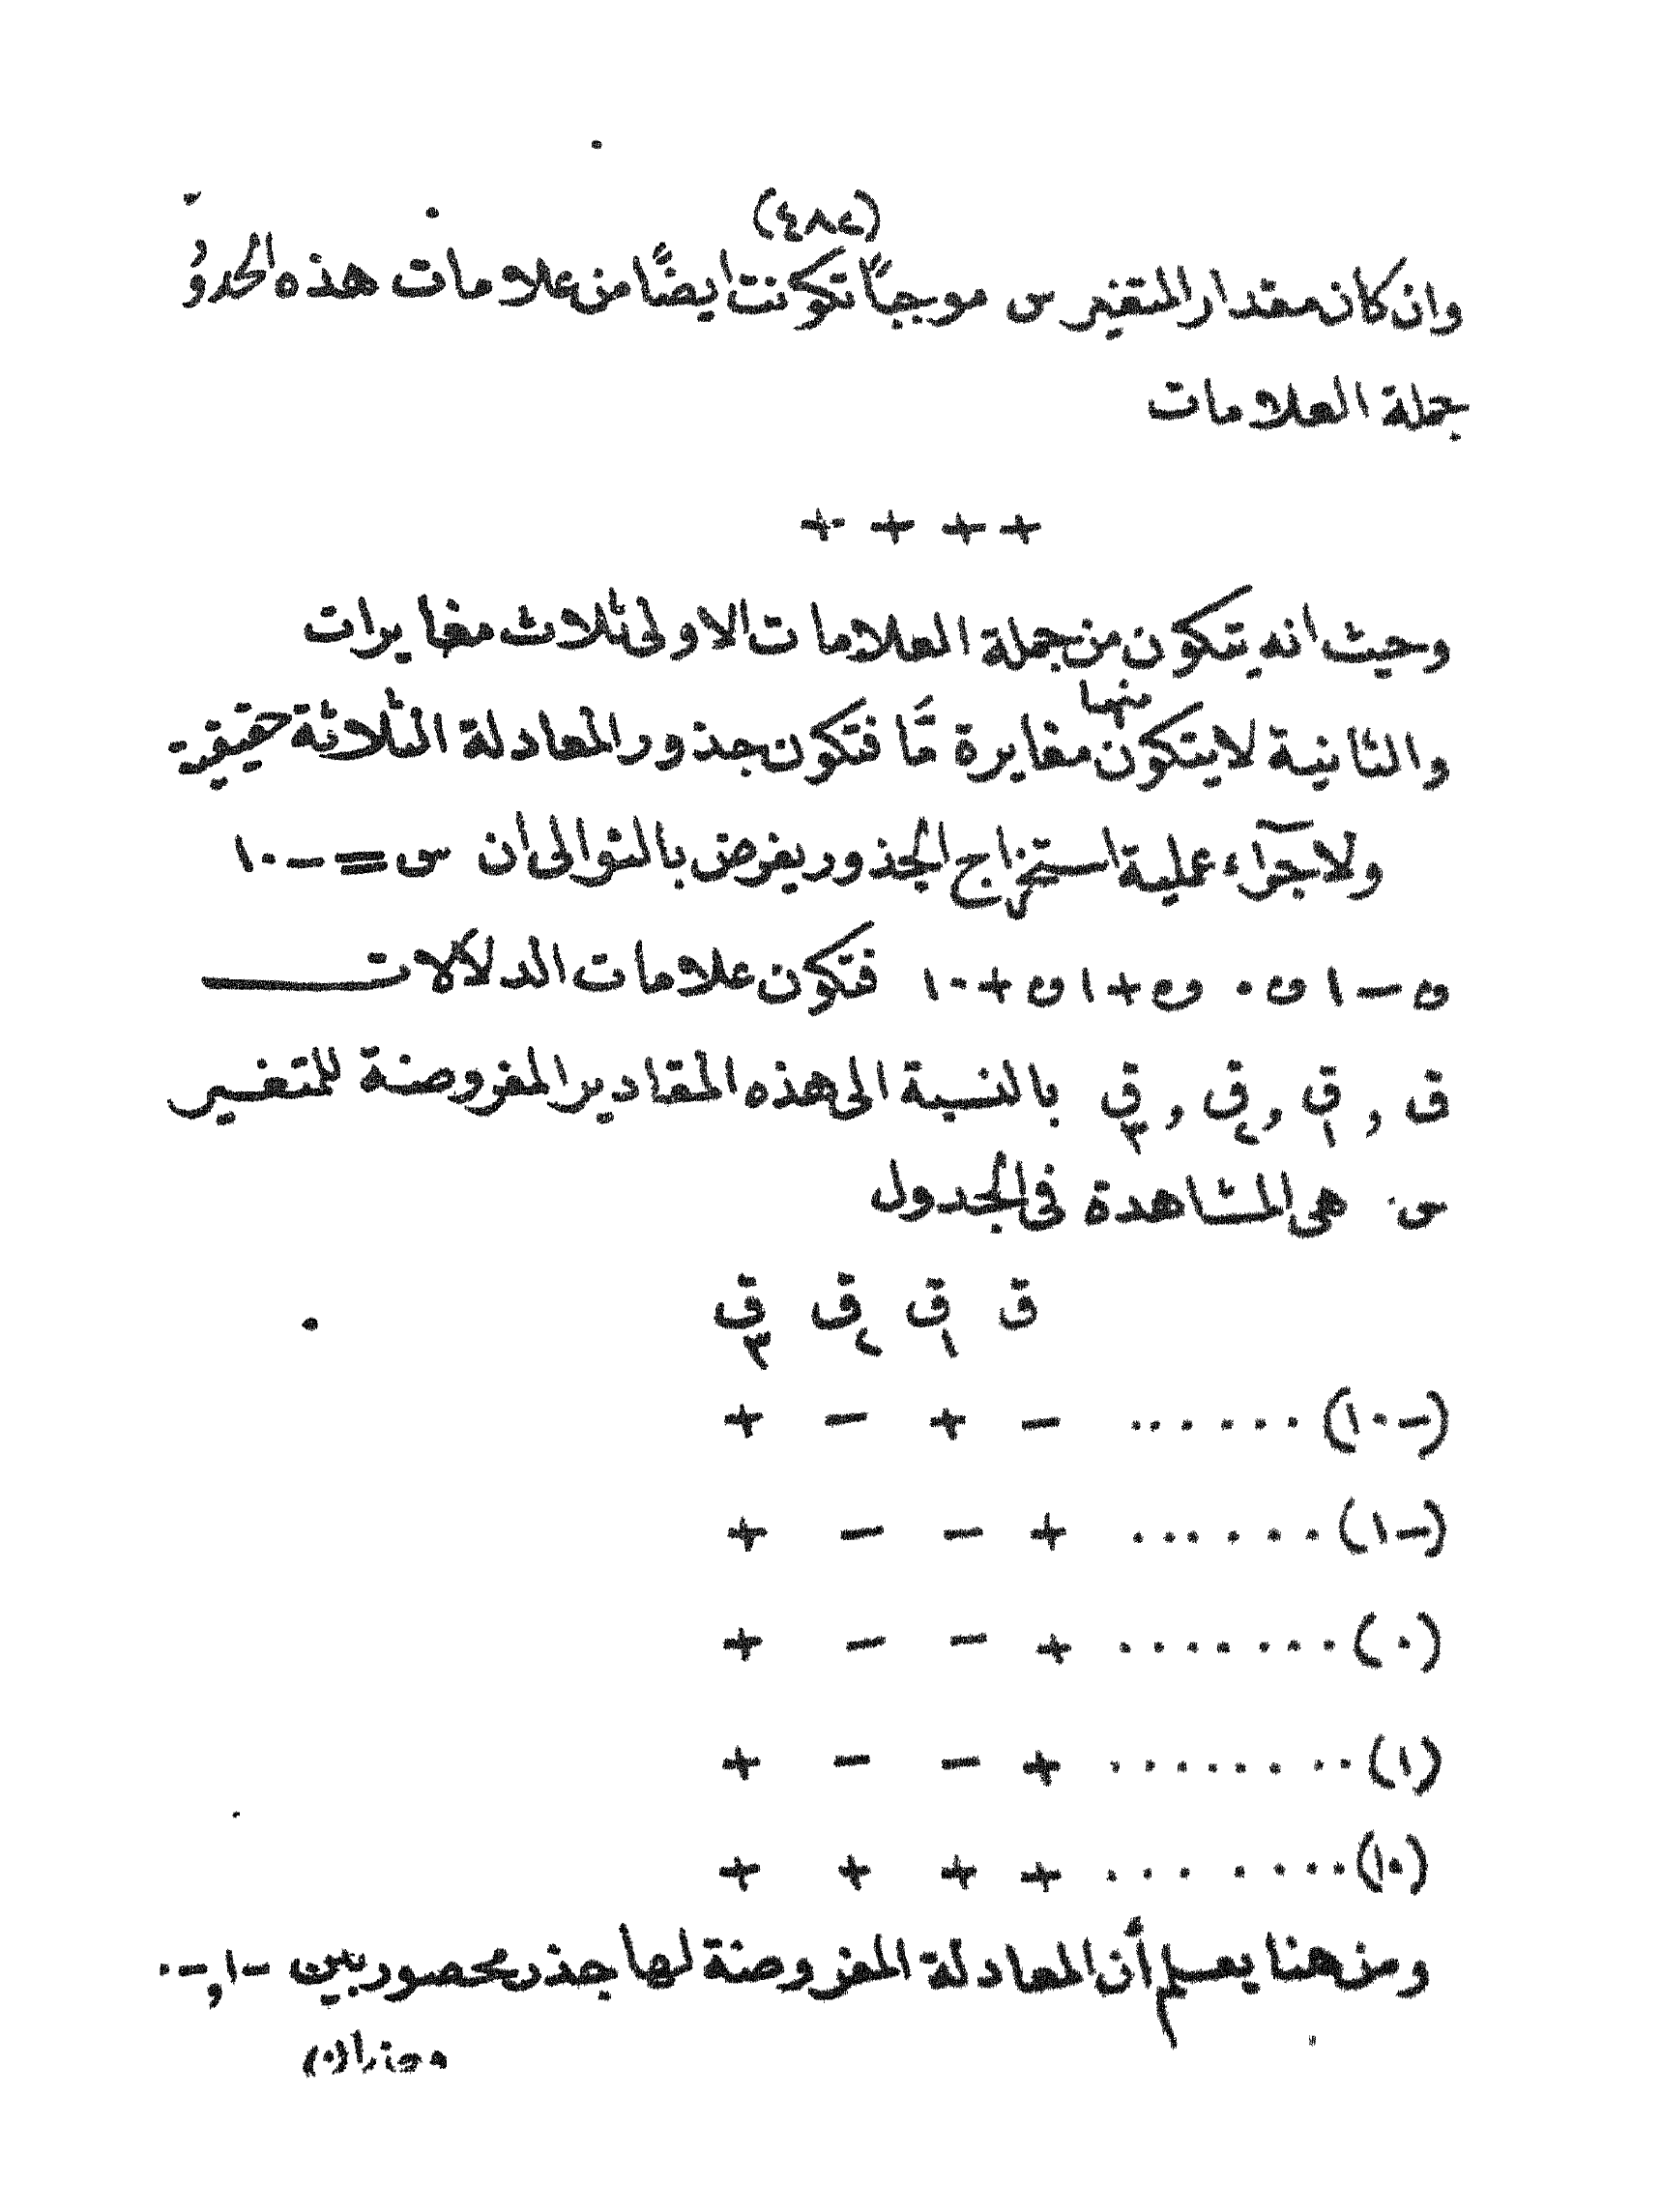 (٤٨٢)
وان كان مقدار المتغير س موجبًا تكونت ايضًا من علامات هذه الحدود
جملة العلامات
+ + + +
وحيث انه يتكون من جملة العلامات الاولى ثلاث مغايرات
والثانية لايتكون منها مغايرة مَّا فتكون جذور المعادلة الثلاثة حقيقية
ولاجرآء عملية استخراج الجذور يفرض بالتوالى ان س = -١٠
و -١ و ٠ و +١ و +١٠ فتكون علامات الدلالات
ق , ق١ , ق٢ , ق٣ بالنسبة الى هذه المقادير المفروضة للمتغير
س هى المشاهدة فى الجدول
ق ق١ ق٢ ق٣
(-١٠) ....... - + - +
(-١) ....... + - - +
(٠) ........ + - - +
(١) ........ + - - +
(١٠) ....... + + + +
ومن هنا يعلم أن المعادلة المفروضة لها جذر محصور بين -١ , -٠